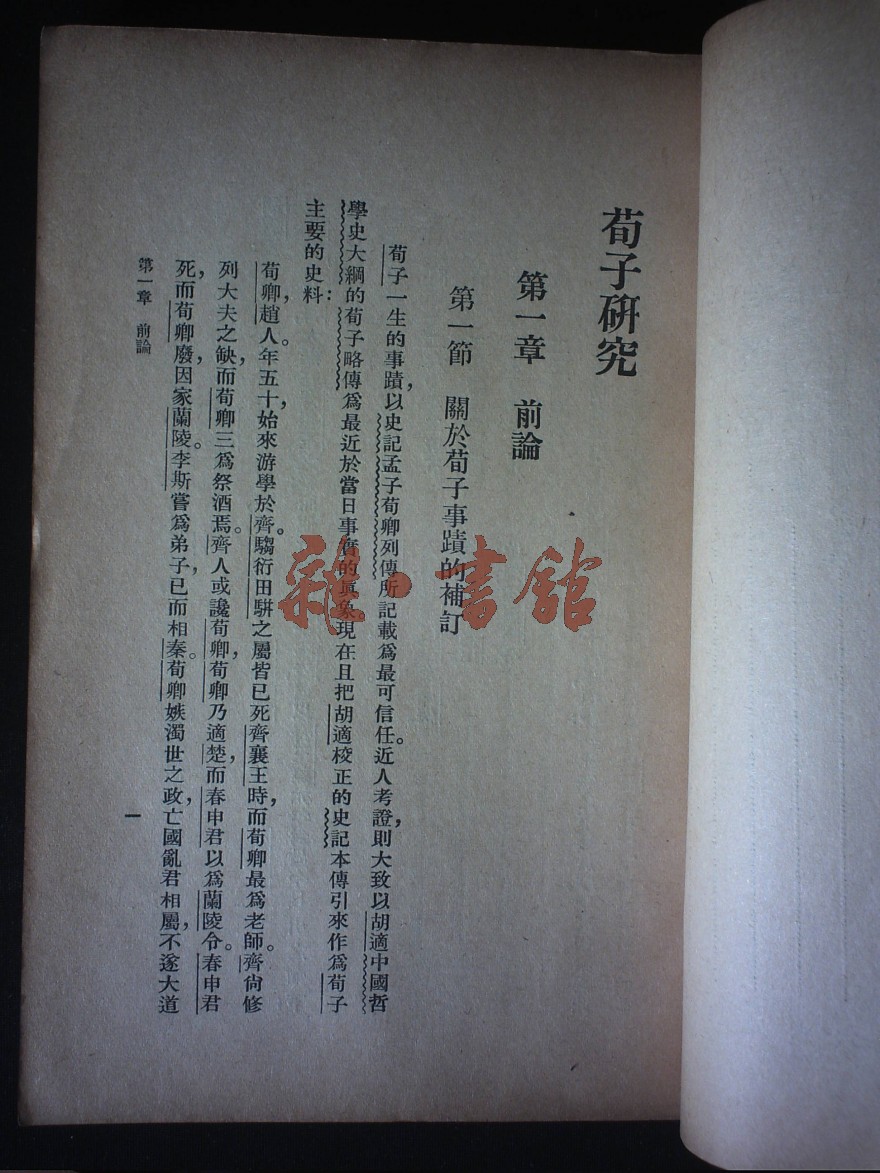 荀子硏究
第一章　前論
第一節　關於荀子事蹟的補訂
荀子一生的事蹟，以史記孟子荀卿列傳所記載爲最可信任。近人考證，則大致以胡適中國哲
學史大綱的荀子略傳爲最近於當日事實的眞象。現在且把胡適校正的史記本傳引來作爲荀子
主要的史料：
荀卿，趙人。年五十，始來游學於齊。騶衍田騈之屬皆已死齊襄王時，而荀卿最爲老師。齊尙修
列大夫之缺，而荀卿三爲祭酒焉。齊人或讒荀卿，荀卿乃適楚，而春申君以爲蘭陵令。春申君
死，而荀卿廢，因家蘭陵。李斯嘗爲弟子，已而相秦。荀卿嫉濁世之政，亡國亂君相屬，不遂大道
第一章　前論
一
雜·書舘